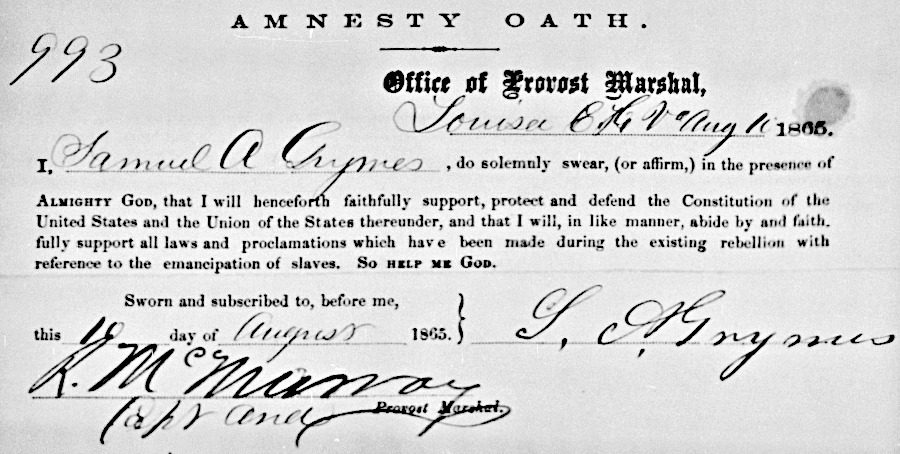 AMNESTY OATH.
993
Office of Provost Marshal,
Louisa C H Va Aug 10 1865.
I, Samuel A Grymes, do solemnly swear, (or affirm,) in the presence of
ALMIGHTY GOD, that I will henceforth faithfully support, protect and defend the Constitution of the
United States and the Union of the States thereunder, and that I will, in like manner, abide by and faith.
fully support all laws and proclamations which have been made during the existing rebellion with
reference to the emancipation of slaves. SO HELP ME GOD.
Sworn and subscribed to, before me,
this 10 day of August 1865. } S. A. Grymes
Capt and Provost Marshal.